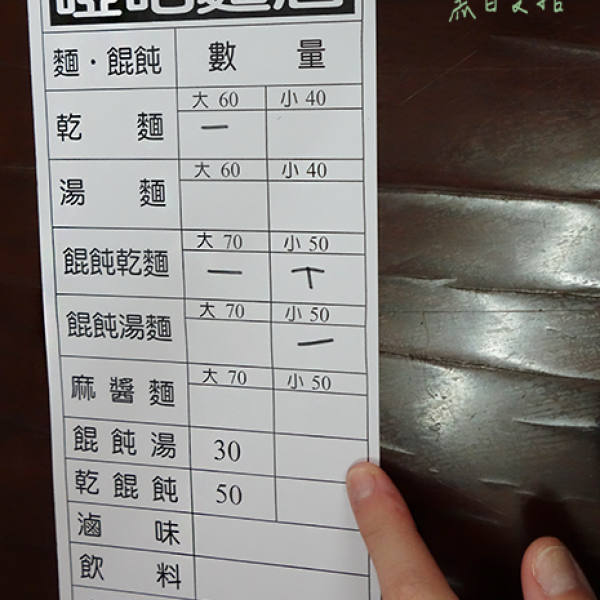 麵・餛飩 數 量
乾 麵 大 60 小 40
一
湯 麵 大 60 小 40
餛飩乾麵 大 70 小 50
一 丅
餛飩湯麵 大 70 小 50
一
麻醬麵 大 70 小 50
餛飩湯 30
乾餛飩 50
滷 味
飲 料